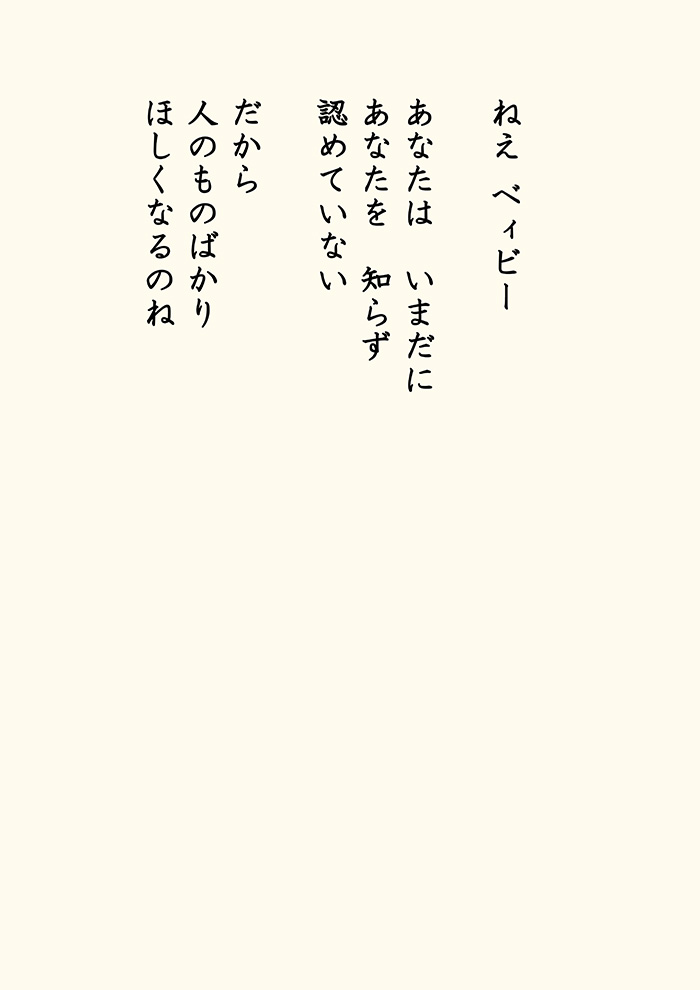 ねえ ベィビー
あなたは　いまだに
あなたを　知らず
認めていない
だから
人のものばかり
ほしくなるのね